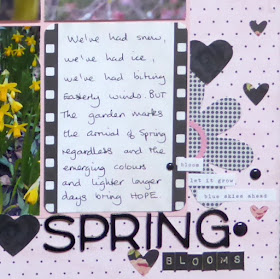 We've had snow,
we've had ice,
we've had biting
Easterly winds. BUT
The garden marks
the arrival of Spring
regardless and the
emerging colours
and lighter longer
days bring HOPE
bloom
let it grow
blue skies ahead
SPRING
BLOOMS